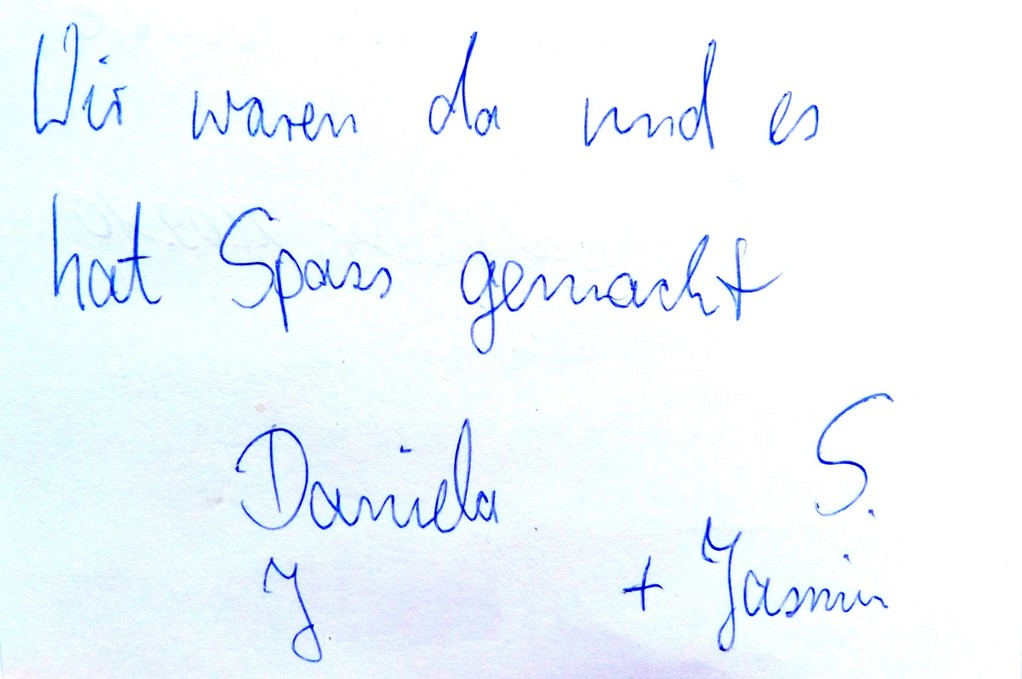 Wir waren da und es
hat Spass gemacht
Daniela S.
J + Yasmin